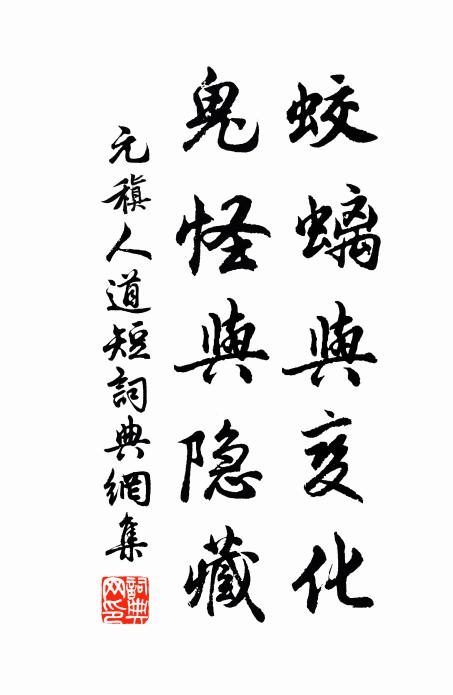 蛟螭與变化
鬼怪與隐藏
元稹人道短詞典網集
詞典网印